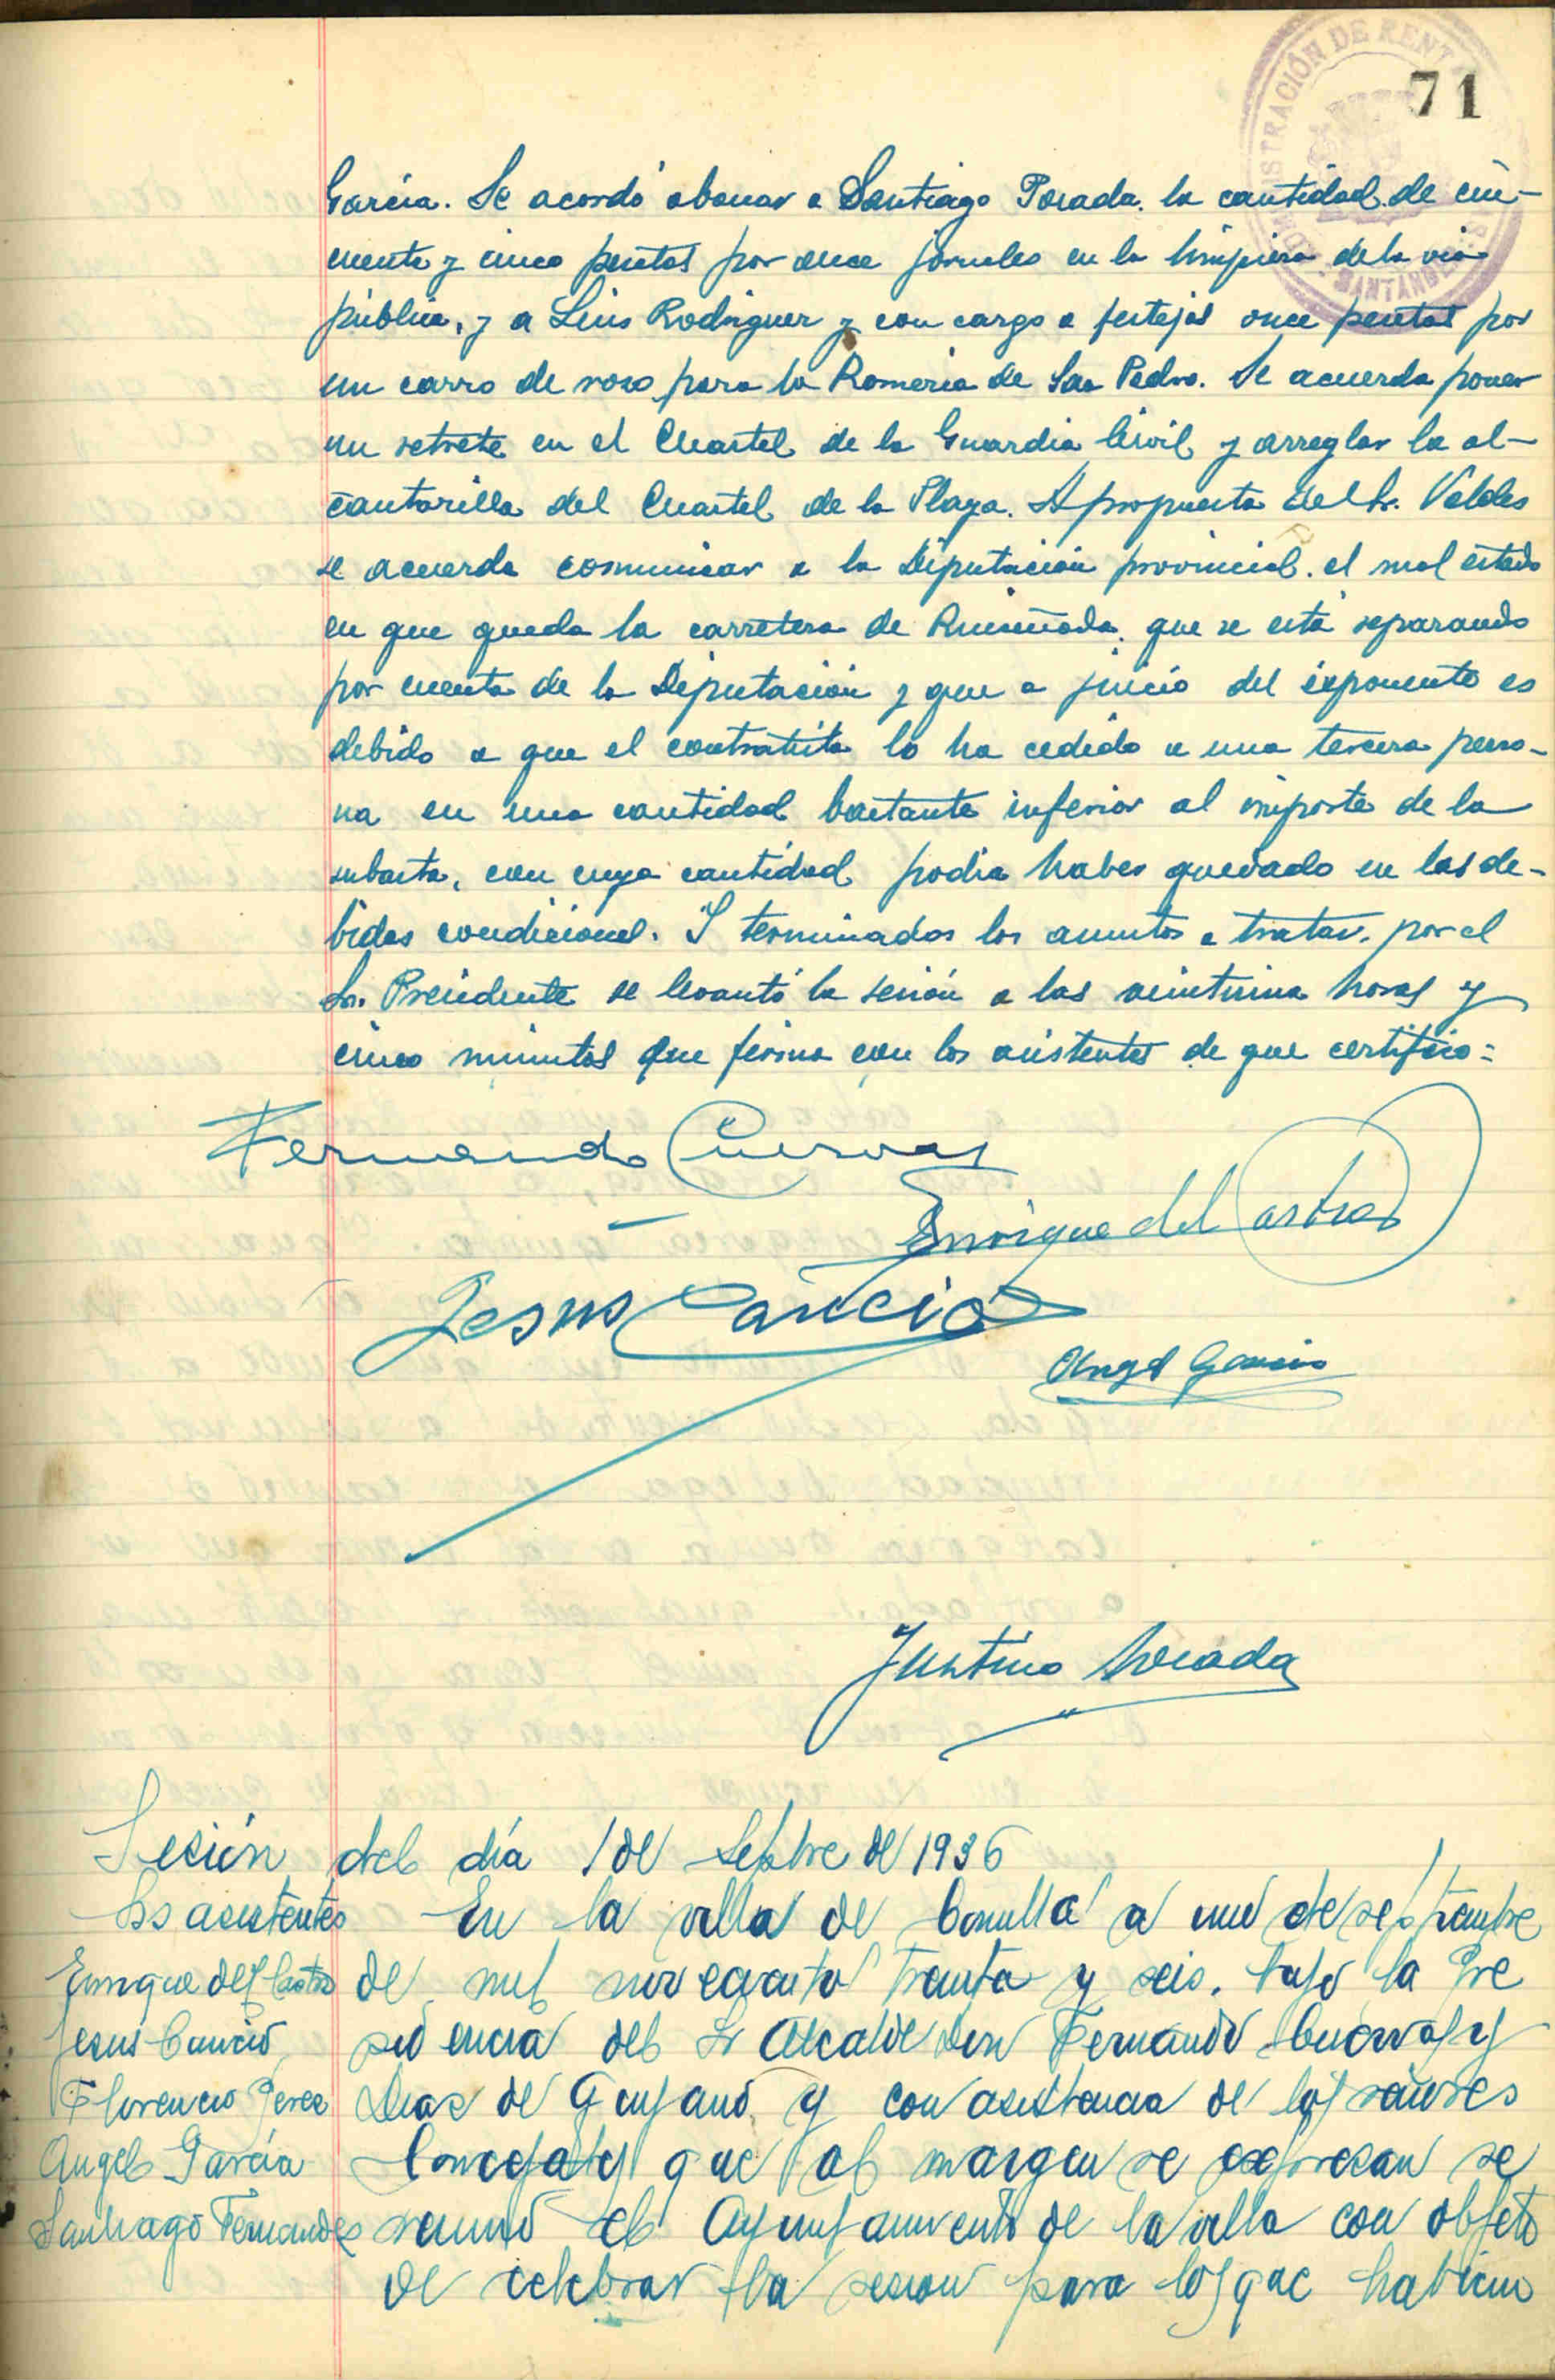 ADMINISTRACIÓN DE RENTAS
SANTANDER
71
García. Se acordó abonar a Santiago Posada la cantidad de cin-
cuenta y cinco pesetas por once jornales en la limpieza de la via
pública, y a Luis Rodriguez y con cargo a festejos once pesetas por
un carro de rozo para la Romeria de San Pedro. Se acuerda poner
un retrete en el Cuartel de la Guardia Civil y arreglar la al-
cantarilla del Cuartel de la Plaza. A propuesta del Sr. Valdes
se acuerda comunicar a la Diputación provincial el mal estado
en que queda la carretera de Ruiseñada que se está reparando
por cuenta de la Diputación y que a juicio del exponente es
debido a que el contratista lo ha cedido a una tercera perso-
na en una cantidad bastante inferior al importe de la
subasta, con cuya cantidad podia haber quedado en las de-
bidas condiciones. Y terminados los asuntos a tratar, por el
Sr. Presidente se levantó la sesión a las veintiuna horas y
cinco minutos que firma con los asistentes de que certifico=
Fernando Cuevas
Enrique del Castro
Jesus Cancio
Angel Garcia
Justino Posada
Sesión del día 1 de Sepbre de 1936
Srs asistentes En la villa de Comillas a uno de septiembre
Enrique del Castro de mil novecientos treinta y seis, bajo la Pre
Jesus Cancio sidencia del Sr Alcalde Don Fernando Cuevas y
Florencio Perez Diaz de Guyano y con asistencia de los señores
Angel García Concejales que al margen se expresan se
Santiago Fernandez reunió el Ayuntamiento de la villa con objeto
de celebrar la sesion para los que habian